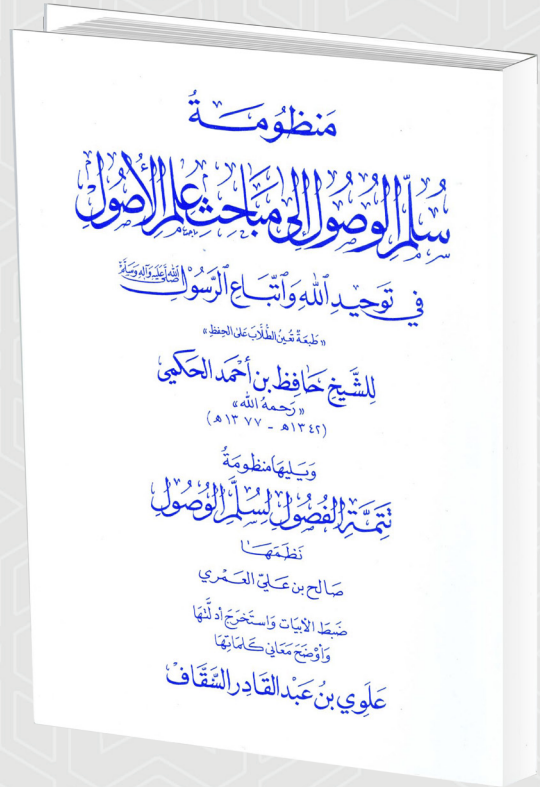 مَنظُومَةُ
سُلَّمِ الوُصُولِ إِلَى مَبَاحِثِ عِلمِ الأُصُولِ
فِي تَوحِيدِ ٱللهِ وَٱتِّبَاعِ ٱلرَّسُولِ صَلَّى اللهُ عَلَيْهِ وَآلِهِ وَسَلَّمَ
«طَبعَةٌ تُعِينُ الطُّلَّابَ عَلَى الحِفظِ»
لِلشَّيخِ حَافِظِ بن أَحْمَد الحَكَمِي
«رَحمهُ الله»
(١٣٤٢هـ - ١٣٧٧هـ)
وَيَليهَا منظومَةُ
تَتِمَّةِ الفُصُولِ لِسُلَّمِ الوُصُولِ
نَظَمَهَا
صَالح بن عَليّ العَمْري
ضَبَطَ الأَبيَاتِ وَاستَخرَجَ أَدلَّتَهَا
وَأَوْضَحَ مَعَاني كَلمَاتِهَا
عَلَوي بنُ عَبْد القَادِر السَّقَّاف